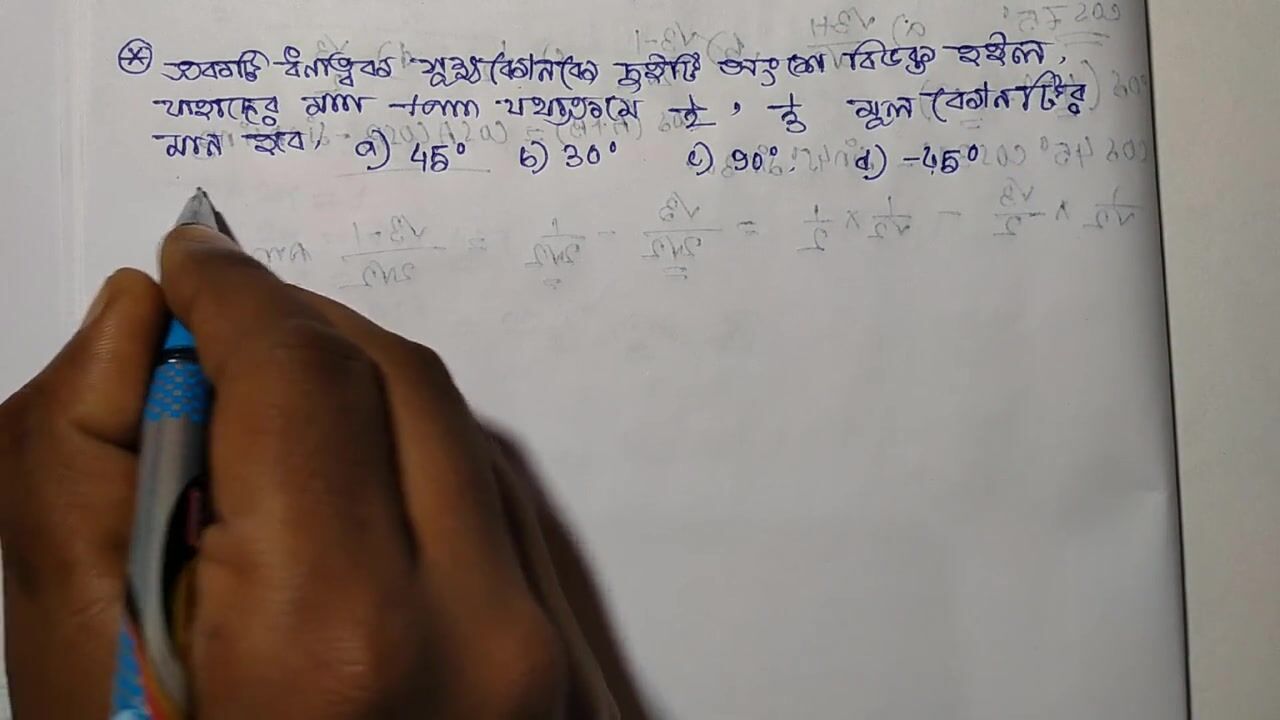 একটি ধনাত্মক সূক্ষ্মকোনকে দুইটি অংশে বিভক্ত হইল,
যাহাদের মান tan যথাক্রমে 1/2, 1/3 মূল কোনটির
মান হবে, a) 45° b) 30° c) 90°, d) -45°